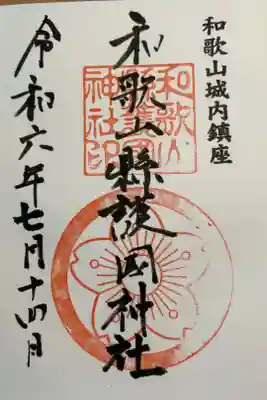 和歌山城内鎮座
和歌山縣護国神社
和歌山
縣護國
神社印
令和六年七月十四日